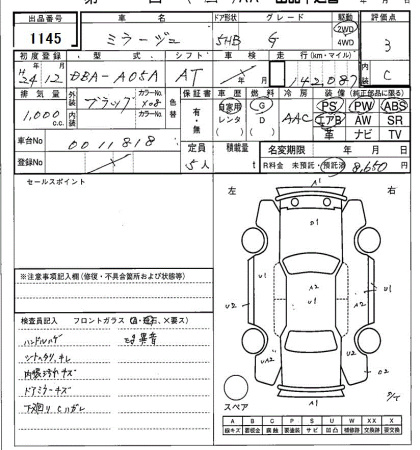 出品番号 車名 ドア形状 グレード 駆動 評価点
1145 ミラージュ 5HB G 2WD 4WD 3
初度登録 型式 シフト 車検 走行(km・マイル) 内装
H24 12 DBA-A05A AT 142,087 C
排気量 外装 ブラック カラーNo. X08 色替 保証書 車歴 燃料 冷房 装備(純正部品に限る)
1,000 c.c. 内装 カラーNo. 有・無 自家用 レンタ G D AAC PS PW ABS
エアB AW SR
革 ナビ TV
車台No 0011818
登録No 定員 5人 積載量 t 名変期限 年 月 日
R料金 未預託・預託済 8,650
セールスポイント
左 右
A1
D1
U1 U1 U1
U2 U2
UA2 UA2
D2
A1
スペア
※注意事項記入欄(修復・不具合箇所および状態等)
検査員記入 フロントガラス(A・飛石、X要ス)
ハンドルハゲ
シートスリ、キレ
内張キズ
ドアミラーキズ
下廻り Cハガレ
A B C P S U W X XX
線キズ 要板金 腐蝕 要塗装 サビ 凹凸 補修跡 交換跡 要交換